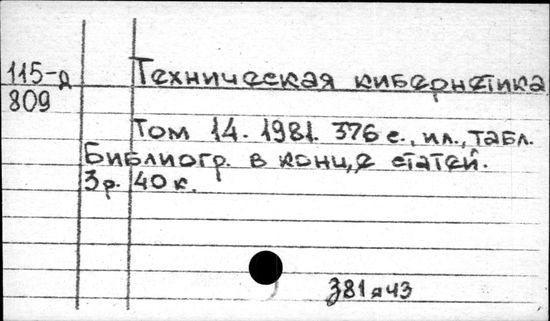 115-д Техническая кибернетика
809
Том 14. 1981. 376 с., ил., табл.
Библиогр. в конце статей.
3р. 40к.
З81я43